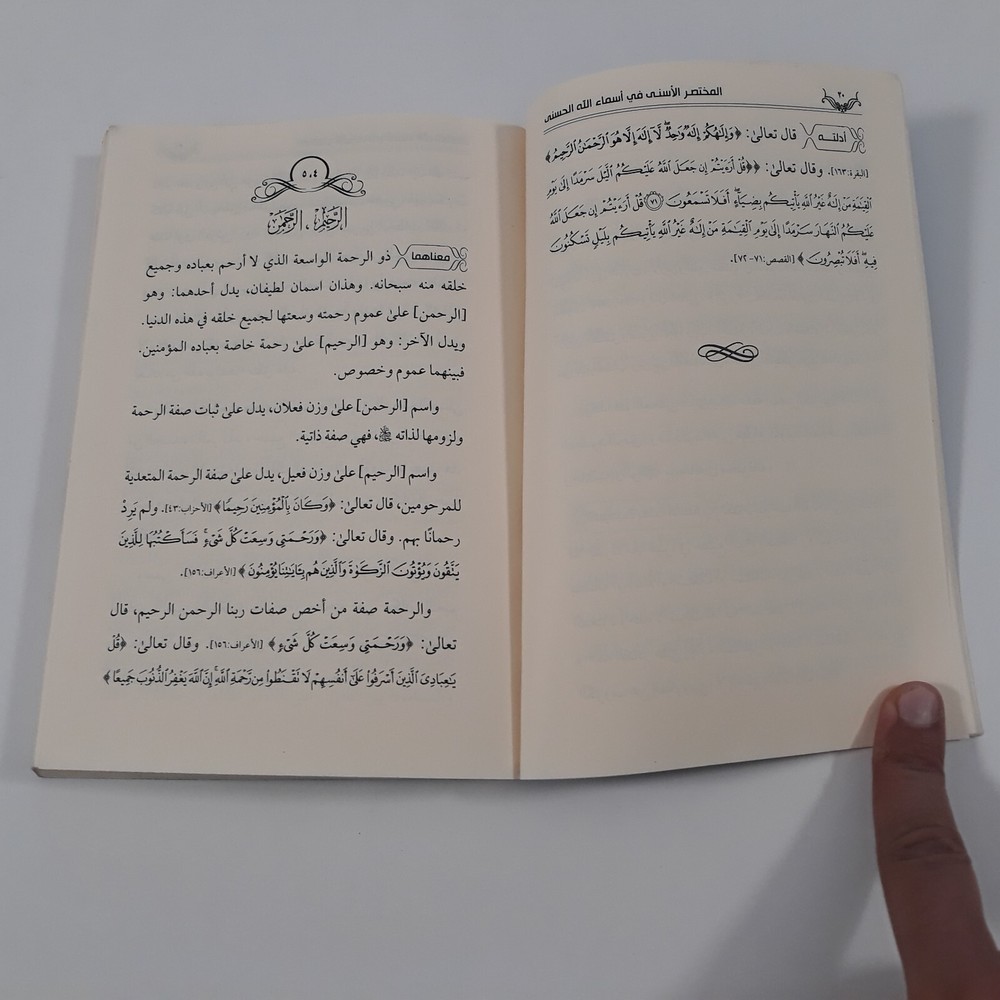 ٢٠
المختصر الأسنى في أسماء الله الحسنى
أدلته قال تعالىٰ: ﴿وَإِلَٰهُكُمْ إِلَٰهٌ وَٰحِدٌ ۖ لَّآ إِلَٰهَ إِلَّا هُوَ ٱلرَّحْمَٰنُ ٱلرَّحِيمُ﴾
[البقرة:١٦٣]. وقال تعالىٰ: ﴿﴿قُلْ أَرَءَيْتُمْ إِن جَعَلَ ٱللَّهُ عَلَيْكُمُ ٱلَّيْلَ سَرْمَدًا إِلَىٰ يَوْمِ
ٱلْقِيَٰمَةِ مَنْ إِلَٰهٌ غَيْرُ ٱللَّهِ يَأْتِيكُم بِضِيَآءٍ ۖ أَفَلَا تَسْمَعُونَ ٧١ قُلْ أَرَءَيْتُمْ إِن جَعَلَ ٱللَّهُ
عَلَيْكُمُ ٱلنَّهَارَ سَرْمَدًا إِلَىٰ يَوْمِ ٱلْقِيَٰمَةِ مَنْ إِلَٰهٌ غَيْرُ ٱللَّهِ يَأْتِيكُم بِلَيْلٍ تَسْكُنُونَ
فِيهِ ۖ أَفَلَا تُبْصِرُونَ﴾ [القصص:٧١-٧٢].
٥،٤
الرَّحْمَنُ ، الرَّحِيمُ
معناهما ذو الرحمة الواسعة الذي لا أرحم بعباده وجميع
خلقه منه سبحانه. وهذان اسمان لطيفان، يدل أحدهما: وهو
[الرحمن] علىٰ عموم رحمته وسعتها لجميع خلقه في هذه الدنيا.
ويدل الآخر: وهو [الرحيم] علىٰ رحمة خاصة بعباده المؤمنين.
فبينهما عموم وخصوص.
واسم [الرحمن] علىٰ وزن فعلان، يدل علىٰ ثبات صفة الرحمة
ولزومها لذاته ﷻ، فهي صفة ذاتية.
واسم [الرحيم] علىٰ وزن فعيل، يدل علىٰ صفة الرحمة المتعدية
للمرحومين، قال تعالىٰ: ﴿وَكَانَ بِٱلْمُؤْمِنِينَ رَحِيمًا﴾ [الأحزاب:٤٣]. ولم يَرِدْ
رحمانًا بهم. وقال تعالىٰ: ﴿وَرَحْمَتِى وَسِعَتْ كُلَّ شَىْءٍ ۚ فَسَأَكْتُبُهَا لِلَّذِينَ
يَتَّقُونَ وَيُؤْتُونَ ٱلزَّكَوٰةَ وَٱلَّذِينَ هُم بِـَٔايَٰتِنَا يُؤْمِنُونَ﴾ [الأعراف:١٥٦].
والرحمة صفة من أخص صفات ربنا الرحمن الرحيم، قال
تعالىٰ: ﴿وَرَحْمَتِى وَسِعَتْ كُلَّ شَىْءٍ﴾ [الأعراف:١٥٦]. وقال تعالىٰ: ﴿قُلْ
يَٰعِبَادِىَ ٱلَّذِينَ أَسْرَفُوا۟ عَلَىٰٓ أَنفُسِهِمْ لَا تَقْنَطُوا۟ مِن رَّحْمَةِ ٱللَّهِ ۚ إِنَّ ٱللَّهَ يَغْفِرُ ٱلذُّنُوبَ جَمِيعًا﴾